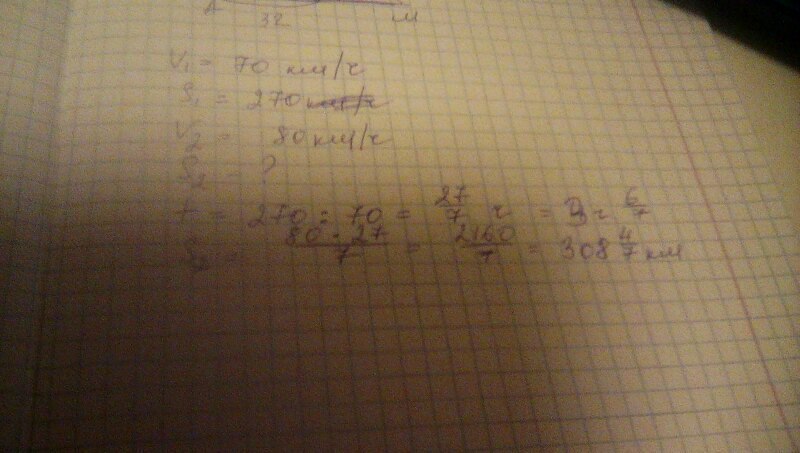 A
32 M
V₁ = 70 км/ч
S₁ = 270 км/ч
V₂ = 80 км/ч
S₂ - ?
t = 270 : 70 = 27/7 ч = 3 ч 6/7
S₂ = 80 · 27/7 = 2160/7 = 308 4/7 км